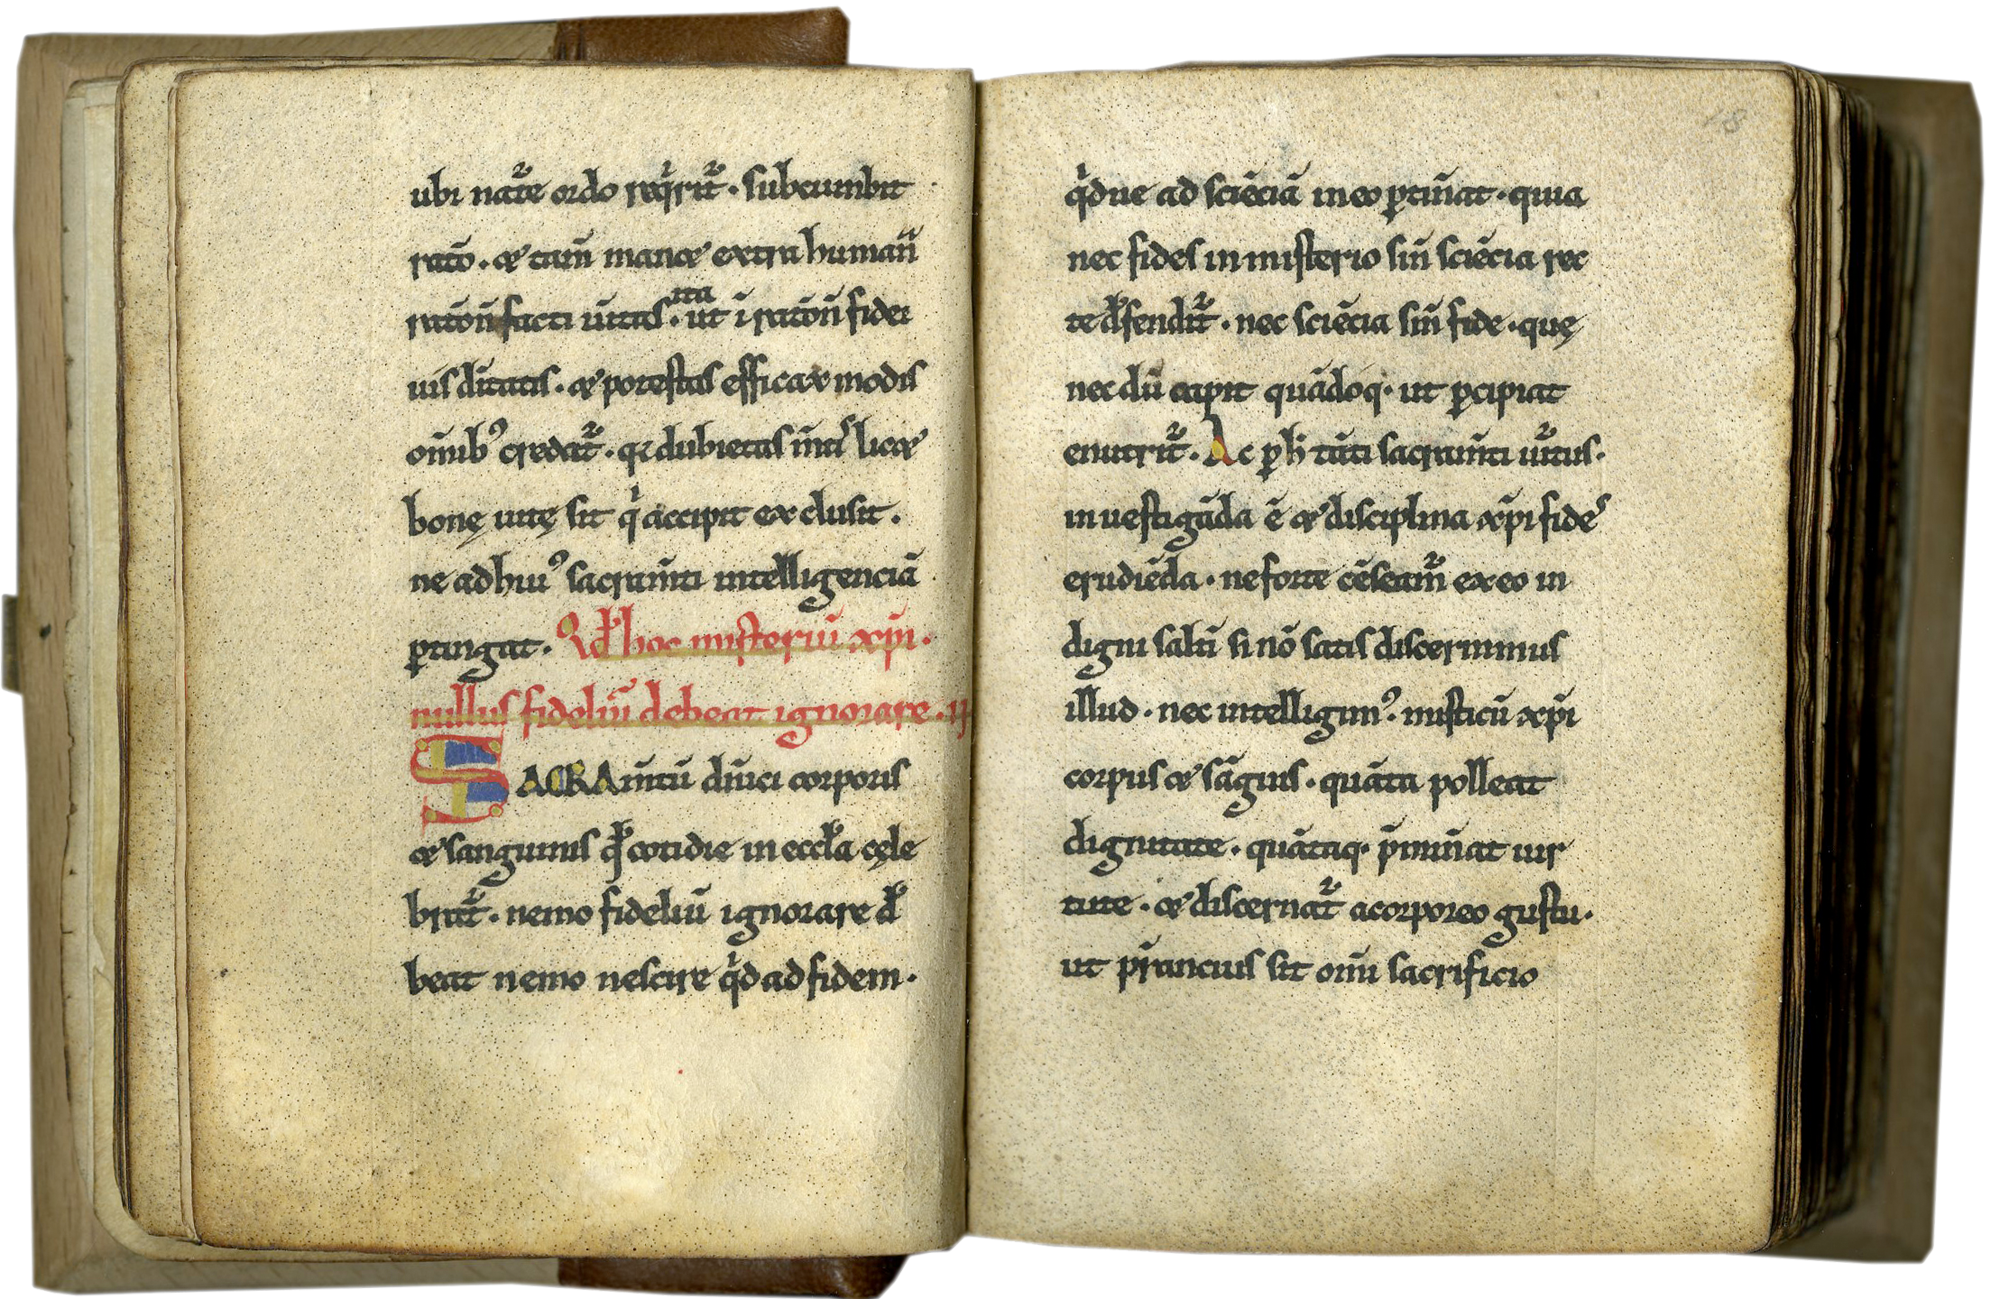 ubi nat᷑e ordo req̍rit᷑. subcumbit
ratō. & tam̄ manæ extra human̄
ratōn̄ facti ūitas. ita ut ī ratōn̄ fidei
uis dīitatis. & potestas efficax modis
om̄ib᾽ credat᷑. dubietas licæ
bonę uitę sit q̍ accipit exclusit.
ne ad hui᾽ sacram̄ti intelligenciā
ꝑtingat. Ad hoc misteriū xp̄i.
nullus fideliū debeat ignorare. ii
SACRAm̄tū dn̄ici corporis
& sanguinis qđ cotidie in eccła cęle
brat᷑. nemo fideliū ignorare đ
beat nemo nescire q̍d ad fidem.
18
q̍due ad sciēciā in eo ꝑtin̄at. quia
nec fides in misterio sin̄ sciēcia rec
te đfendit᷑. nec sciēcia sin̄ fide. quę
nec dū capit quādoq· ut ꝑcipiat
enutrit᷑. Ac ꝑ ħ tāti sacram̄ti uirtus.
inuestigāda ē & disciplina xp̄i fide
erudiēda. ne forte cēseam᷑ ex eo in
digni saltī si nō satis discernimus
illud. nec intelligim᾽. misticū xp̄i
corpus & sāguis. quāta polleat
dignitate. quātaq· p̄min̄at uir
tute. & discernat᷑ a corporeo gustu.
ut p̄stancius sit om̄i sacrificio